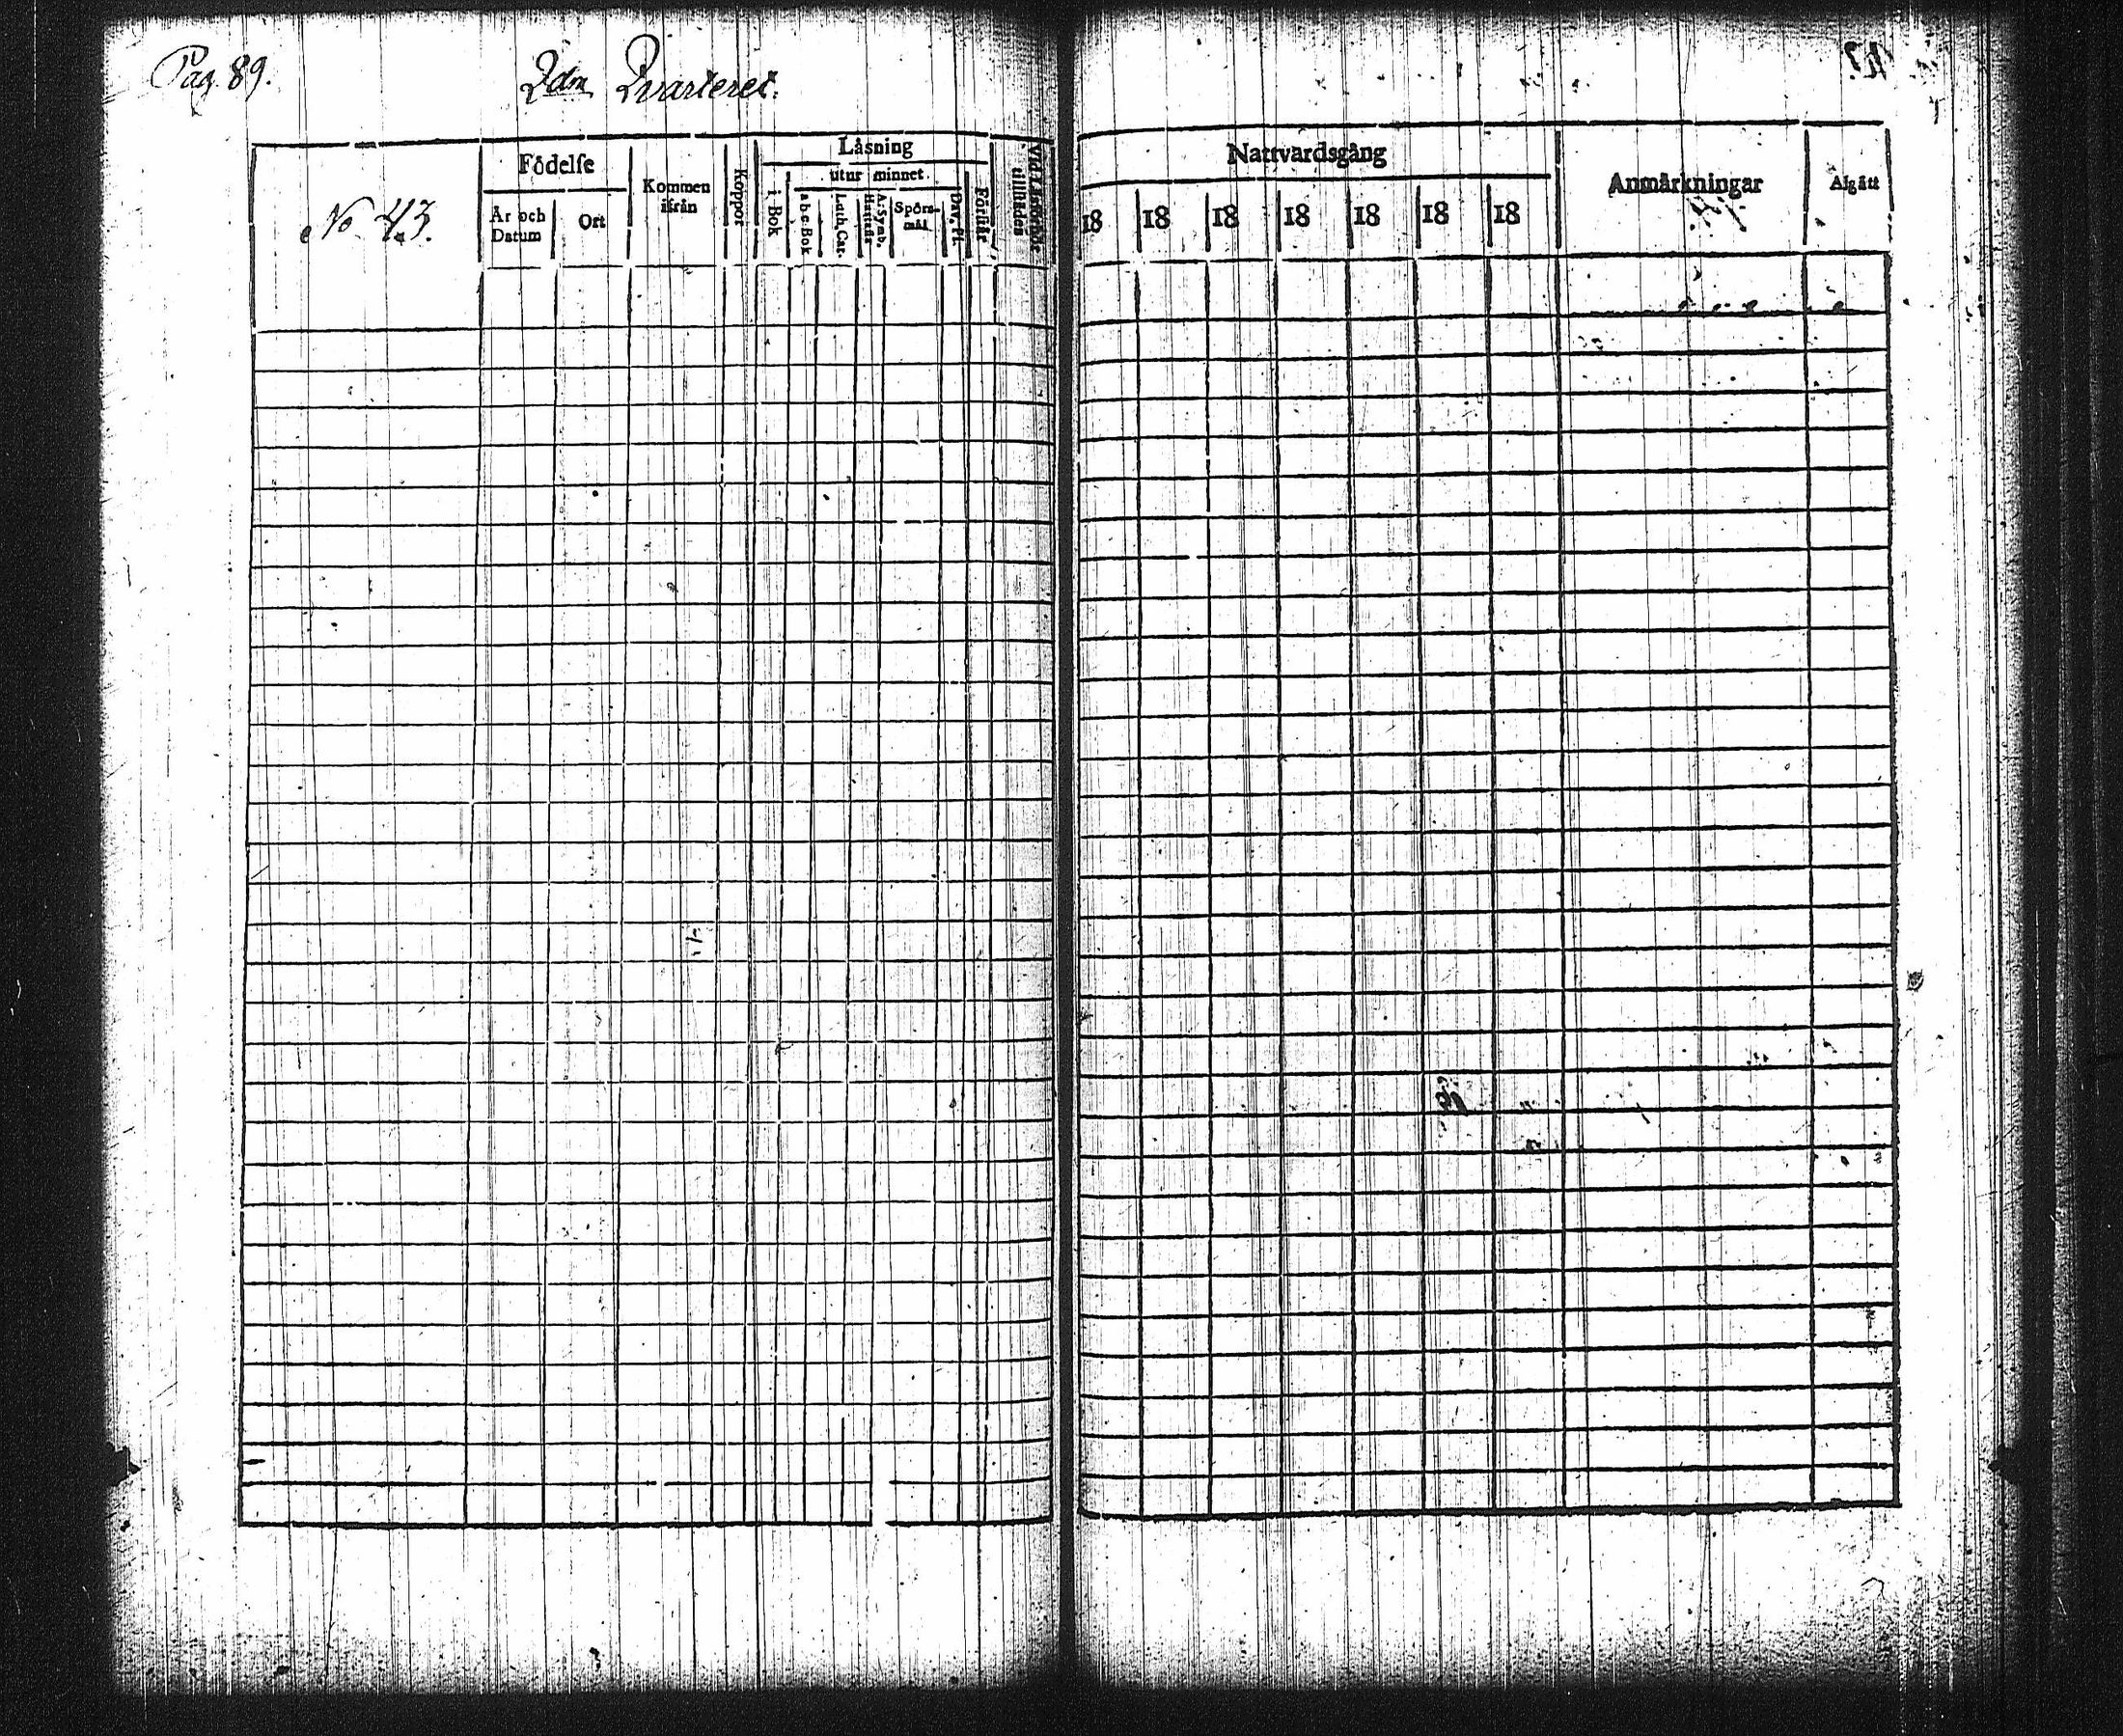 Pag. 89.
2dra Qvarteret.
No 43.
Födelse
År och Datum
Ort
Kommen ifrån
Koppor
Läsning
i Bok
utur minnet
a b c-Bok
Luth. Cat.
A: Symb. Hustafla
Spörs-mål
Dav. Ps.
Förstår
Vid Läsförhör tillstädes
Nattvardsgång
18 18 18 18 18 18 18
Anmärkningar
Afgått